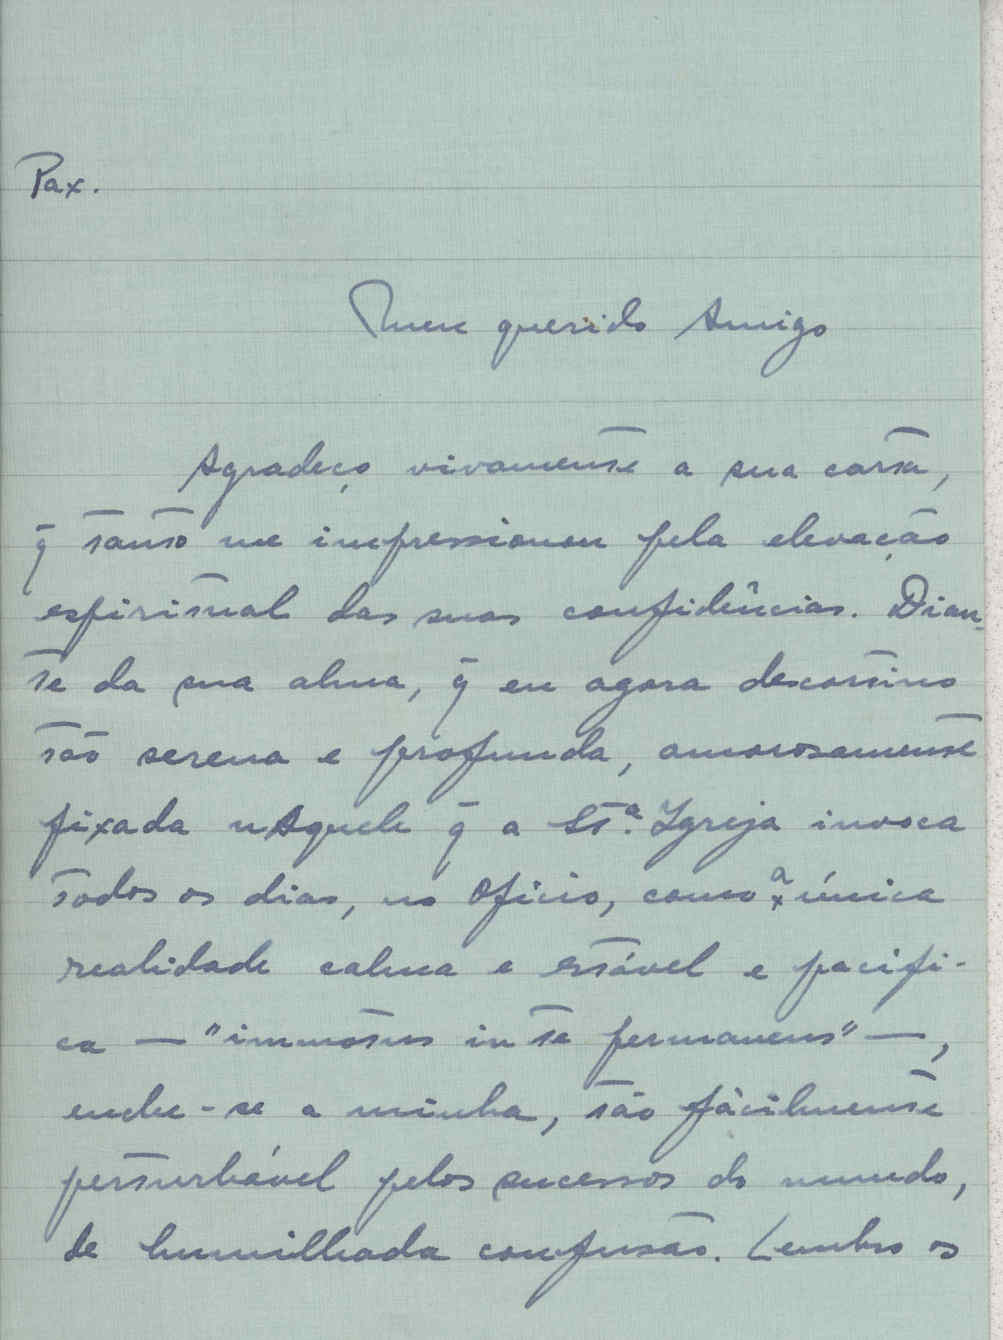 Pax.
Meu querido Amigo
Agradeço vivamente a sua carta,
q̄ tanto me impressionou pela elevação
espiritual das suas confidências. Dian-
te da sua alma, q̄ eu agora descortino
tão serena e profunda, amorosamente
fixada nAquele q̄ a Stª. Igreja invoca
todos os dias, no Ofício, como a única
realidade calma e estável e pacífi-
ca — "immotus in te permanens" —,
enche-se a minha, tão fàcilmente
perturbável pelos sucessos do mundo,
de humilhada confusão. Lembro os